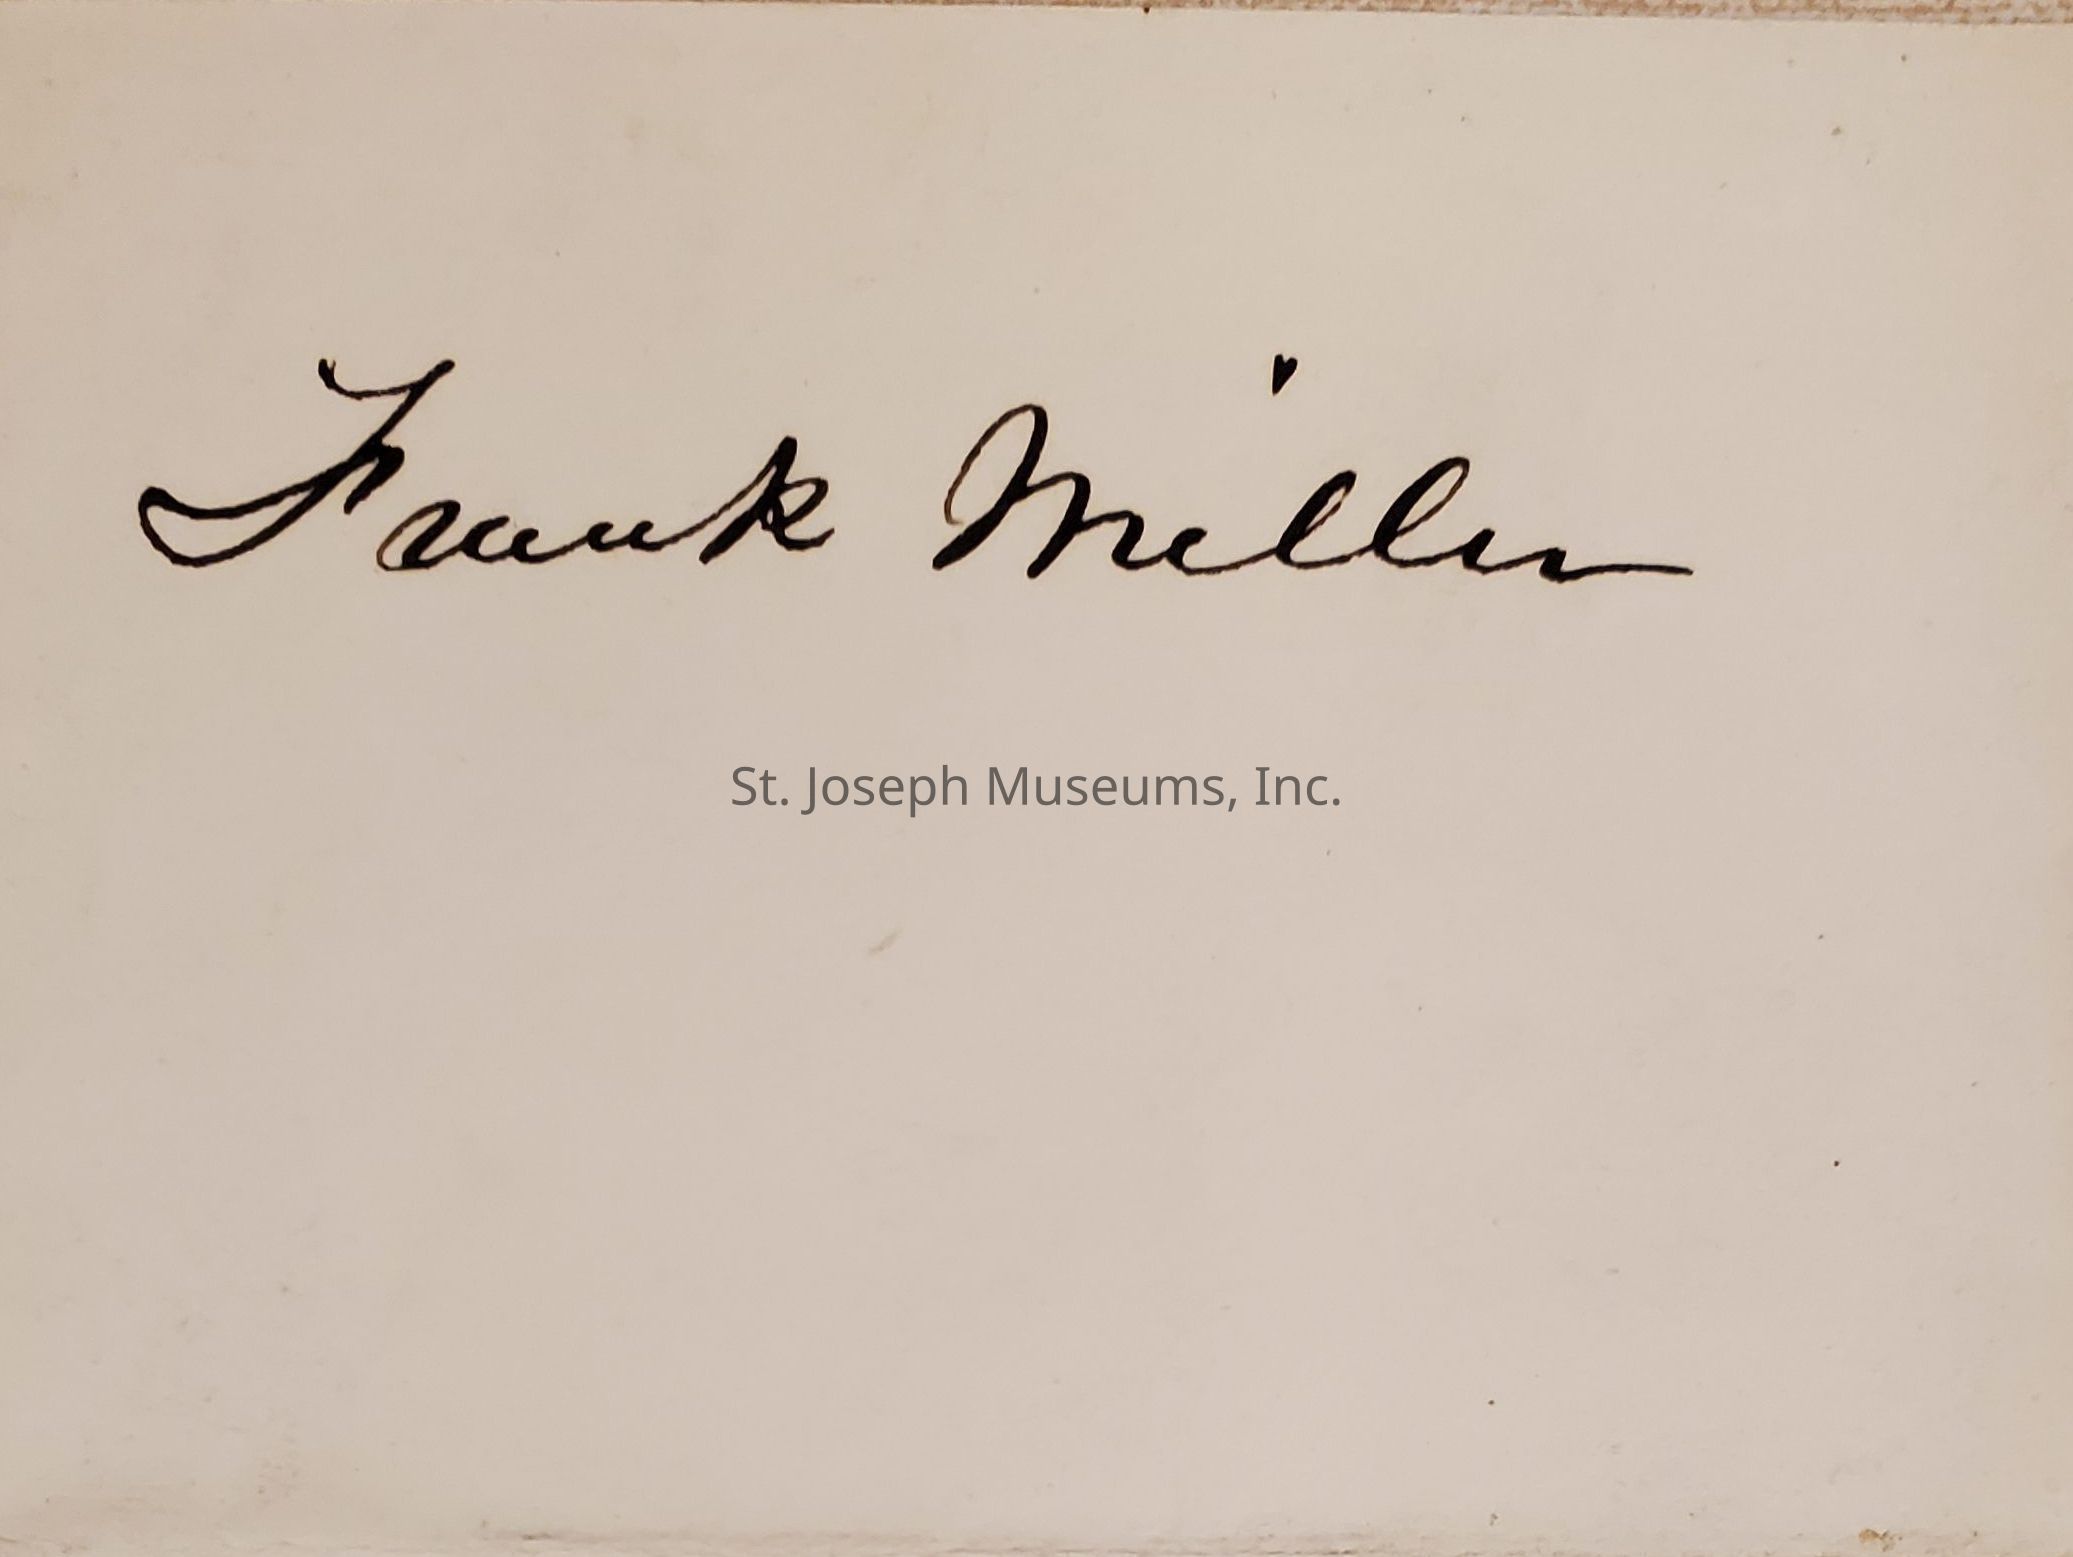 Frank Miller
St. Joseph Museums, Inc.